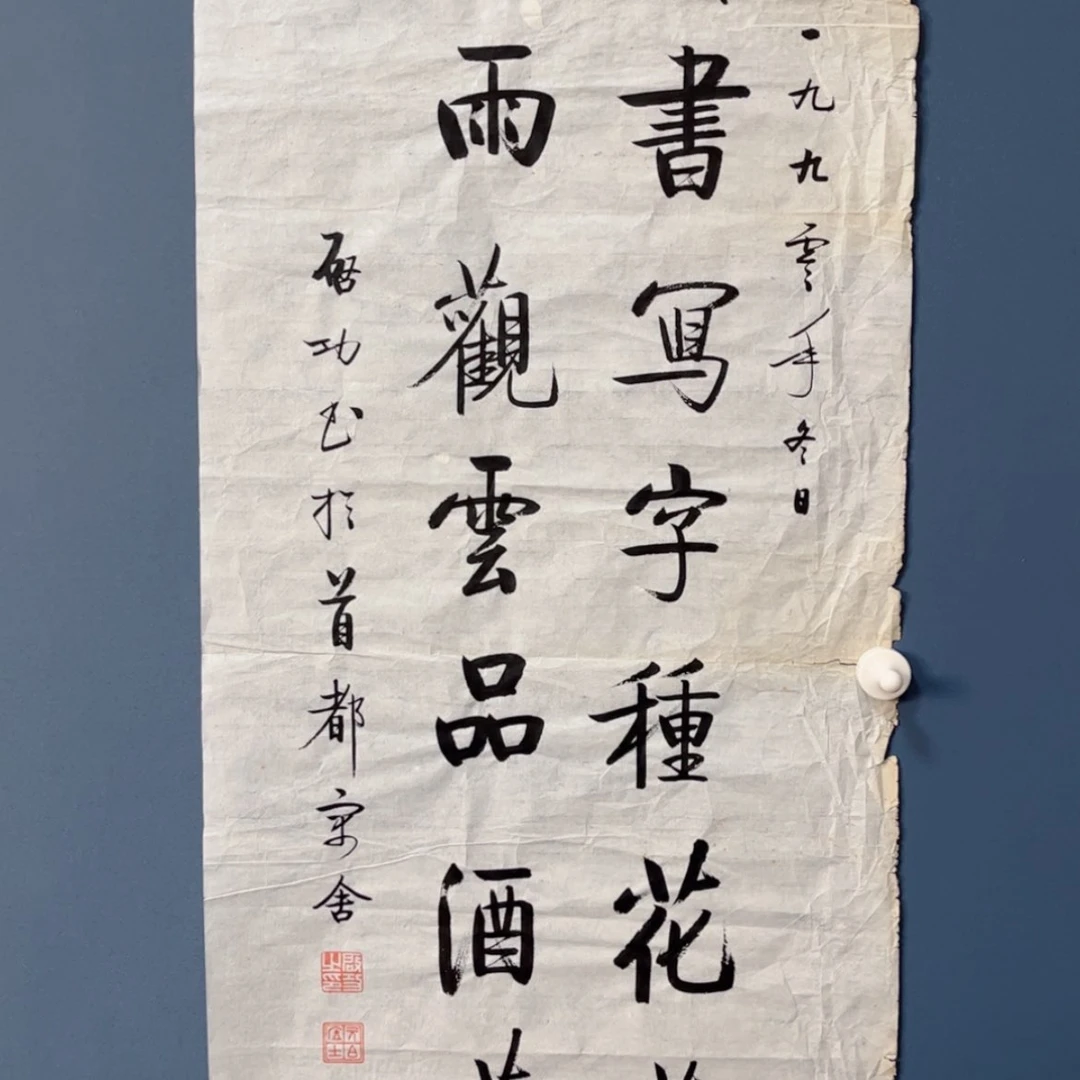 一九九零年冬日
書寫字種花
雨觀雲品酒
啟功書於首都寓舍